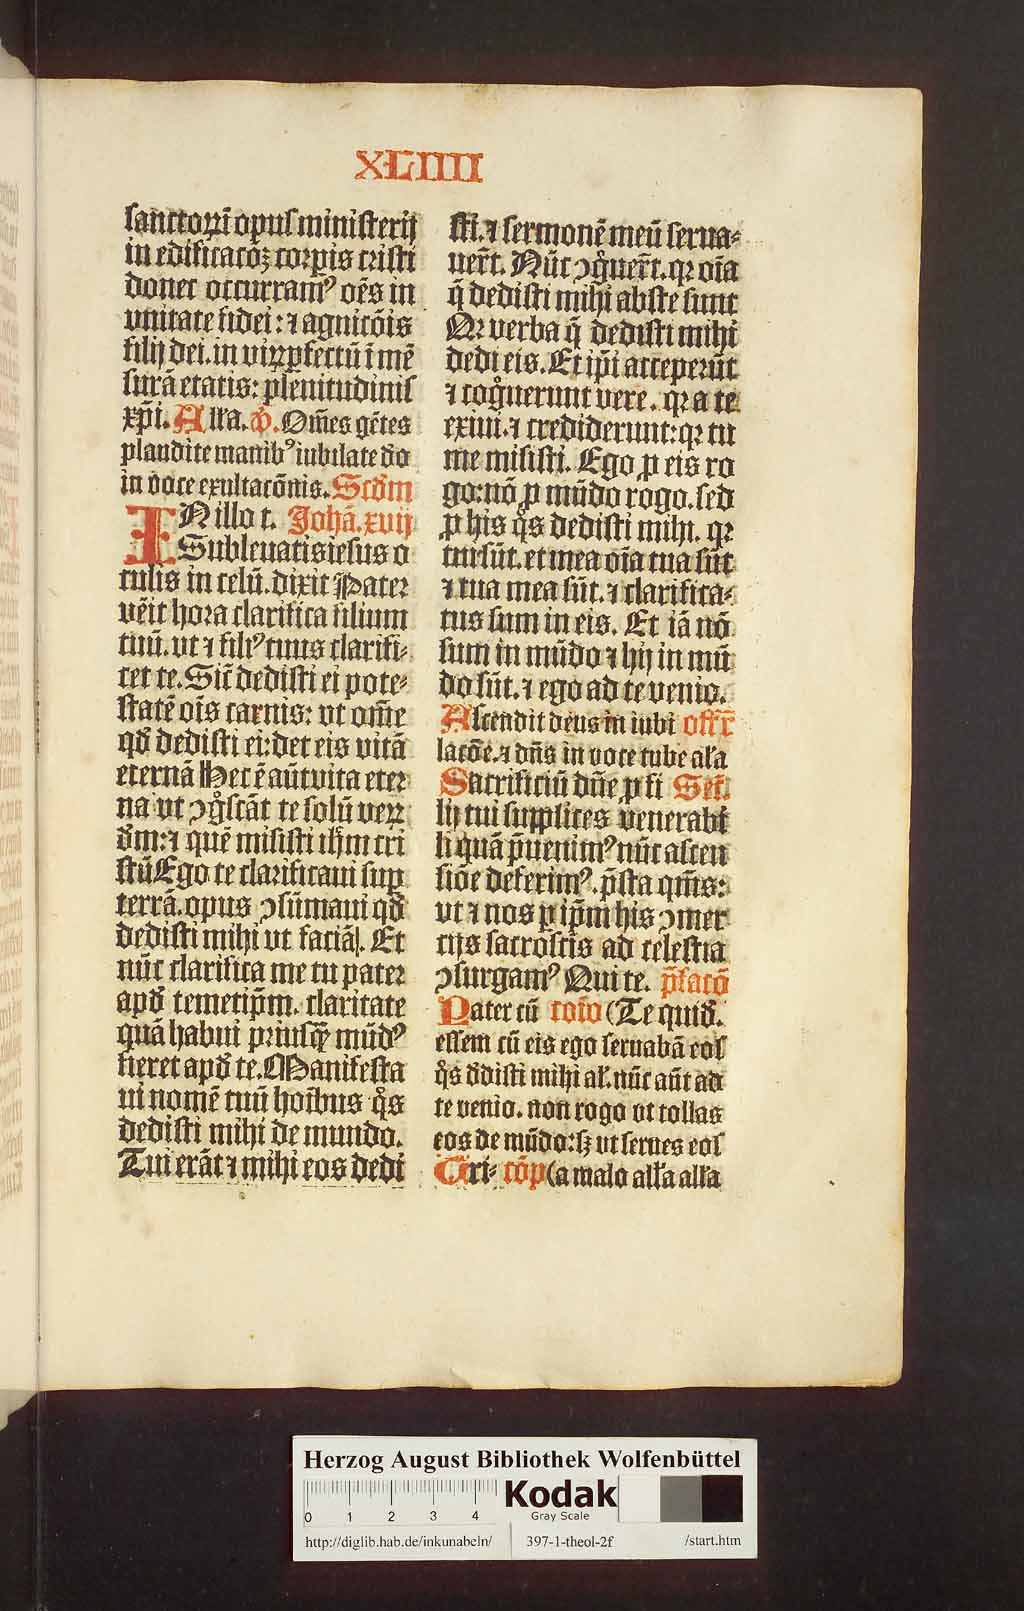 XLIIII
sanctoꝝ opus ministerij
in edificatōꝫ corpis cristi
donec occurramꝰ oēs in
vnitate fidei: ⁊ agnitōis
filij dei. in viꝝ pfectū ī mē
surā etatis: plēnitudinis
xp̄i. Alla. ꝟ. Om̄es gētes
plaudite manibꝰ iubilate do
in voce exultatōnis. Scdm
INillo t. Johā. xvij
Subleuatis iesus o
culis in celū. dixit Pater
vēit hora clarifica filium
tuū. vt ⁊ filiꝰ tuus clarifi⸗
cet te. Sic̄ dedisti ei pote⸗
statē oīs carnis: vt om̄e
qd̄ dedisti ei: det eis vitā
eternā Hec ē aūt vita eter
na vt ꝯgͦscāt te solū veꝝ
dm̄: ⁊ quē misisti ihm̄ cri
stū Ego te clarificaui sup
terrā. opus ꝯsūmaui qd̄
dedisti mihi vt faciā. Et
nūc clarifica me tu pater
apd̄ temetip̄m. claritate
quā habui priusq̄ꝫ mūdꝰ
fieret apd̄ te. Manifesta
ui nomē tuū hoībus qͦs
dedisti mihi de mundo.
Tui erāt ⁊ mihi eos dedi
sti. ⁊ sermonē meū serua⸗
uer̄t. Nūc ꝯgͦuer̄t. qꝛ oīa
q̄ dedisti mihi abs te sunt
Qꝛ verba q̄ dedisti mihi
dedi eis. Et ip̄i acceperūt
⁊ cogͦuerunt vere. qꝛ a te
exiui. ⁊ crediderunt: qꝛ tu
me misisti. Ego ꝓ eis ro
go: nō ꝓ mūdo rogo. sed
ꝓ his qͦs dedisti mihi. qꝛ
tui sūt. et mea oīa tua sūt
⁊ tua mea sūt. ⁊ clarifica⸗
tus sum in eis. Et iā nō
sum in mūdo ⁊ hij in mū
do sūt. ⁊ ego ad te venio.
Ascendit deus in iubi offr̄
latōe. ⁊ dn̄s in voce tube al'a
Sacrificiū dn̄e ꝓ fi Secr̄.
lij tui supplices venerabi
li quā p̄uenimꝰ nūc ascen
siōe deferimꝰ. p̄sta qm̄s:
vt ⁊ nos p ip̄m his ꝯmer
cijs sacrosctīs ad celestia
ꝯsurgamꝰ Qui te. p̄fatō
Pater cū cōīo (Te quid.
essem cū eis ego seruabā eos
qͦs ddisti mihi al'. nūc aūt ad
te venio. non rogo vt tollas
eos de mūdo: sꝫ vt serues eos
Tri⸗ cōp (a malo all'a all'a
Herzog August Bibliothek Wolfenbüttel
0 1 2 3 4
Kodak
Gray Scale
http://diglib.hab.de/inkunabeln/ 397-1-theol-2f /start.htm